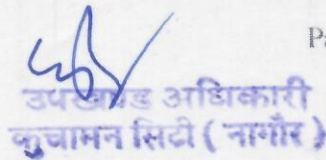 Pa
उपखण्ड अधिकारी
कुचामन सिटी ( नागौर )